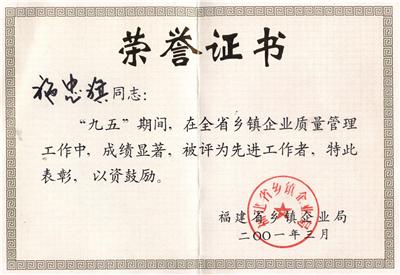 荣誉证书
施忠旗同志：
“九五”期间，在全省乡镇企业质量管理
工作中，成绩显著，被评为先进工作者，特此
表彰，以资鼓励。
福建省乡镇企业局
二〇〇一年三月